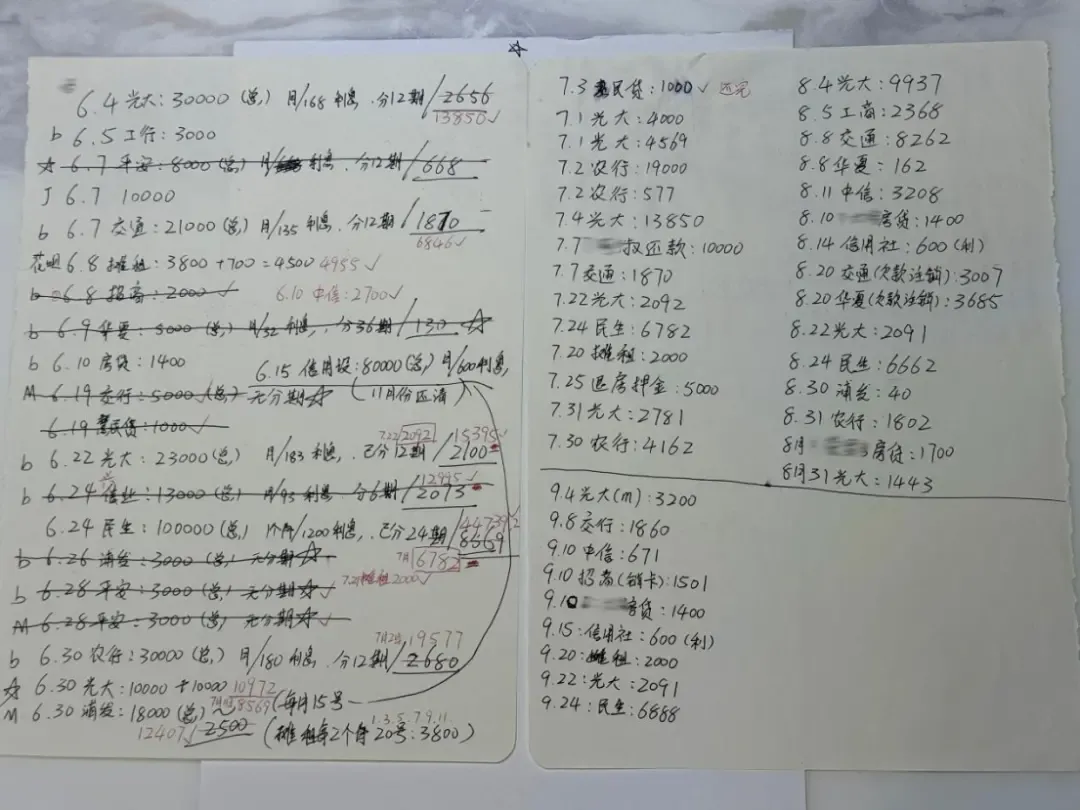 6.4 光大:30000(总) 月/168利息.分12期/2656
13850✓
b 6.5 工行:3000
☆ 6.7 平安:8000(总) 月/利息.分12期/668
J 6.7 10000
b 6.7 交通:21000(总) 月/135利息.分12期/1870
6846✓
花呗 6.8 摊租:3800+700=4500 4955✓
b 6.8 招商:2000✓ 6.10 中信:2700✓
b 6.9 华夏:5000(总) 月/52利息.分36期/130 ☆
b 6.10 房贷:1400
6.15 信用设:80000(总) 月/600利息,
M 6.19 交行:5000(总) 无分期☆ (11月份还清)
6.19 惠民贷:1000✓
7.22 2092 15395✓
b 6.22 光大:23000(总) 月/183利息.已分12期/2100
12995✓
b 6.24 兴业:13000(总) 月/93利息.分6期/2073
44739
6.24 民生:100000(总) 1个月/1200利息.已分24期/8669
b 6.26 浦发:3000(总) 无分期☆ 7月 6782
b 6.28 平安:3000(总) 无分期☆✓ 摊租2000✓
M 6.28 平安:3000(总) 无分期☆✓
19577
b 6.30 农行:30000(总) 月/180利息.分12期/2680
☆ 6.30 光大:10000+10000 10972
8569 (每月15号
M 6.30 浦发:18000(总)
1.3.5.7.9.11.
12407✓ 2500 (摊租每2个月20号:3800)
☆
7.3 惠民贷:1000✓ 还完
7.1 光大:4000
7.1 光大:4569
7.2 农行:19000
7.2 农行:577
7.4 光大:13850
7.7 叔还款:10000
7.7 交通:1870
7.22 光大:2092
7.24 民生:6782
7.20 摊租:2000
7.25 退房押金:5000
7.31 光大:2781
7.30 农行:4162
8.4 光大:9937
8.5 工商:2368
8.8 交通:8262
8.8 华夏:162
8.11 中信:3208
8.10 房贷:1400
8.14 信用社:600(利)
8.20 交通(欠款注销):3007
8.20 华夏(欠款注销):3685
8.22 光大:2091
8.24 民生:6662
8.30 浦发:40
8.31 农行:1802
8月 房贷:1700
8月31 光大:1443
9.4 光大(m):3200
9.8 交行:1860
9.10 中信:671
9.10 招商(销卡):1501
9.10 房贷:1400
9.15:信用社:600(利)
9.20:摊租:2000
9.22:光大:2091
9.24:民生:6888